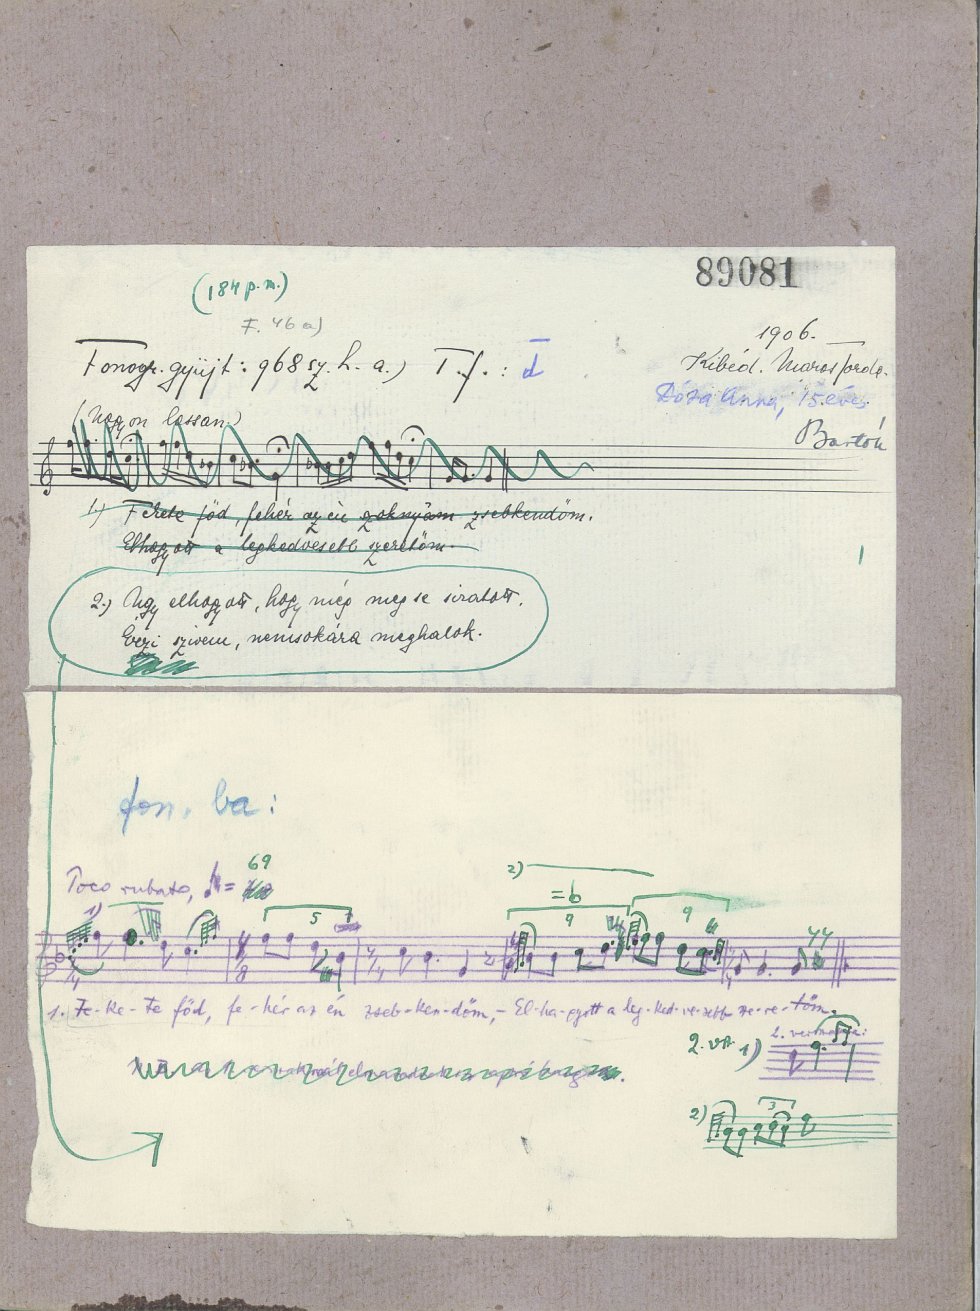 89081
(184 p.m.)
F. 46 a)
1906.
Fonogr. gyüjt: 968 sz. h. a.) T. f. : d
Kibéd. Maros Torda.
Dósa Anna, 15 éves
(Nagyon lassan.)
Bartók
1.) Fekete föd, fehér az én zoknyám zsebkendöm.
Elhagyott a legkedvesebb szeretöm.
2.) Ugy elhagyott, hogy még meg se siratott.
szivem, nemsokára meghalok.
fon. ba:
69
2)
Poco rubato, =
= b
1)
5
7
9
9
1. Fe-ke-te föd, fe-hér az én zseb-ken-döm, - El-ha-gyott a leg-ked-ve-sebb sze-re-töm.
2. vsz 1)
2. versszak:
2)
3